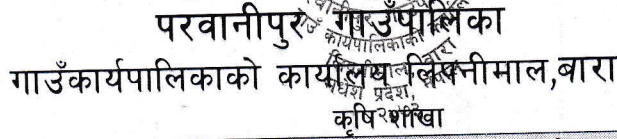 परवानीपुर गाउँपालिका
गाउँकार्यपालिकाको कार्यालय लिपनीमाल,बारा
कृषि शाखा